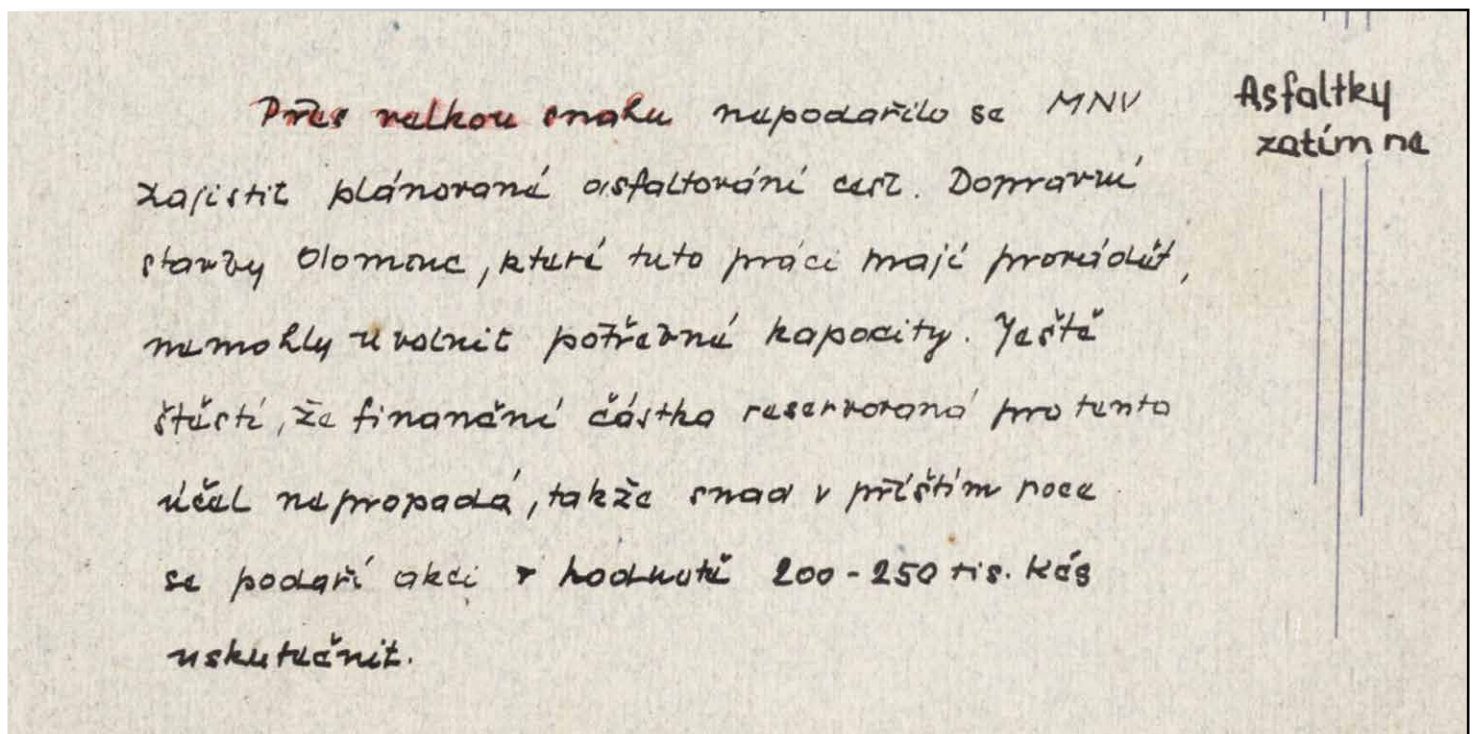 Přes velkou snahu nepodařilo se MNV
zajistit plánované asfaltování cest. Dopravní
stavby Olomouc, které tuto práci mají provádět,
nemohly uvolnit potřebné kapacity. Ještě
štěstí, že finanční částka reservovaná pro tento
účel nepropadá, takže snad v příštím roce
se podaří akci v hodnotě 200-250 tis. Kčs
uskutečnit.
Asfaltky
zatím ne